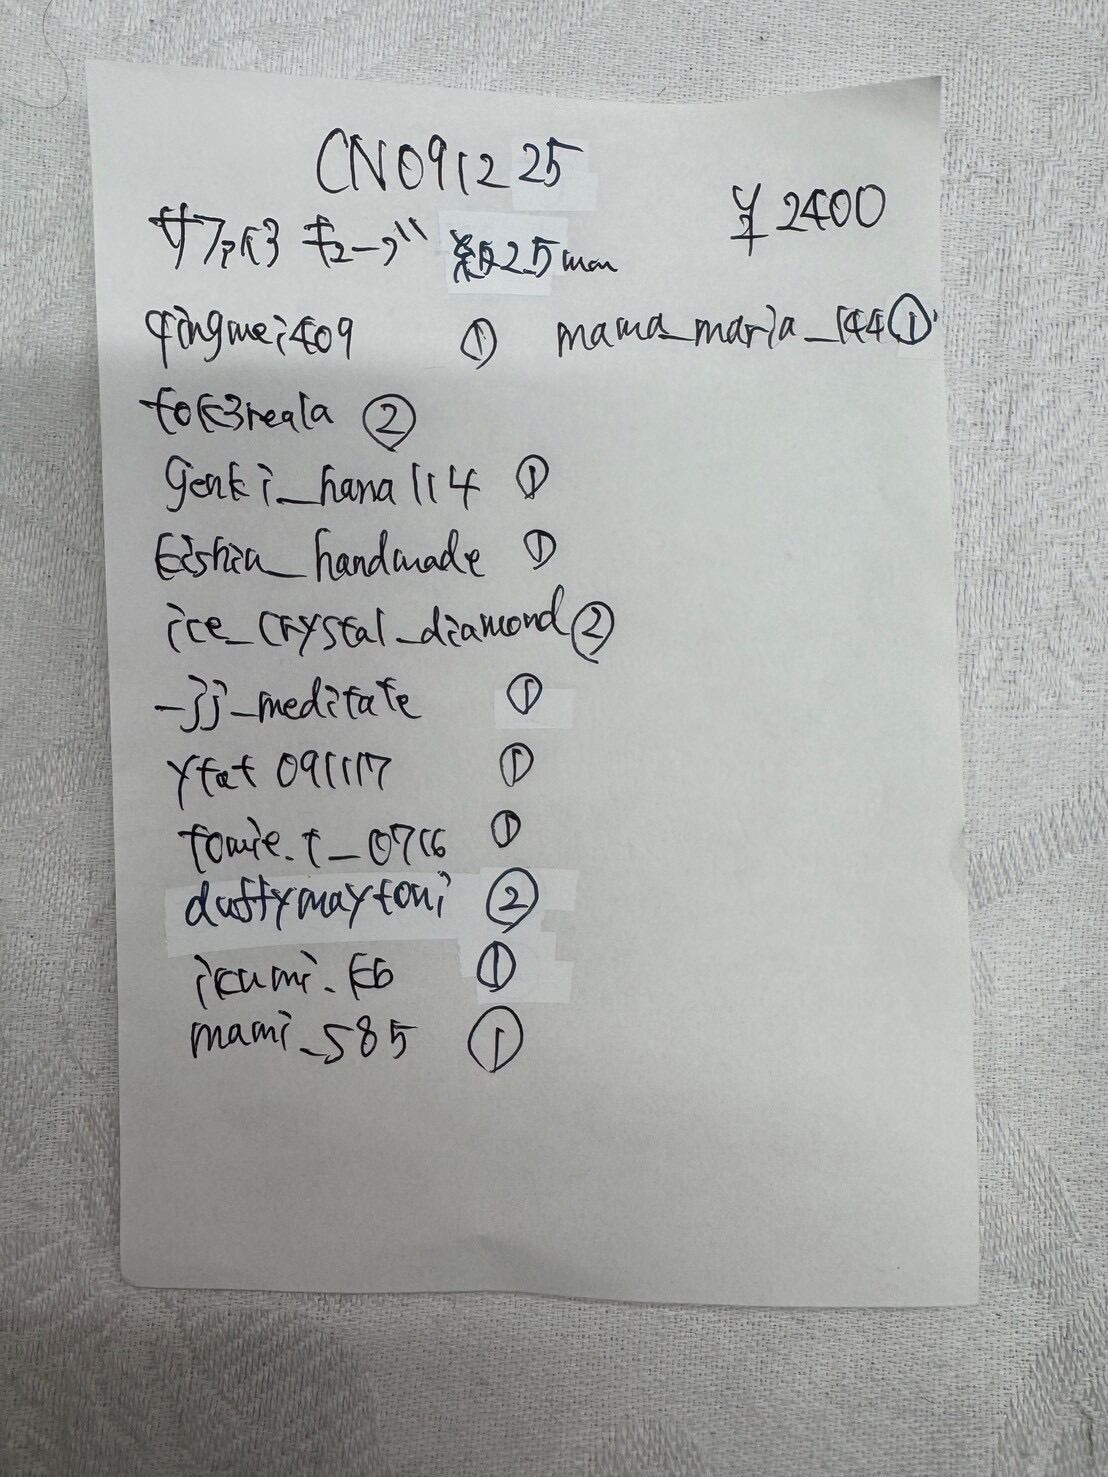 CN091225
¥2400
サファイヤ キューブ 約2.5mm
qingmei409 ①
mama_maria_144 ①
genki_hana114 ①
handmade ①
ice_crystal_diamond ②
_jj_meditate ①
ytat091117 ①
tomie.t_0716 ①
duffymaytoni ②
ikumi.k6 ①
mami_585 ①